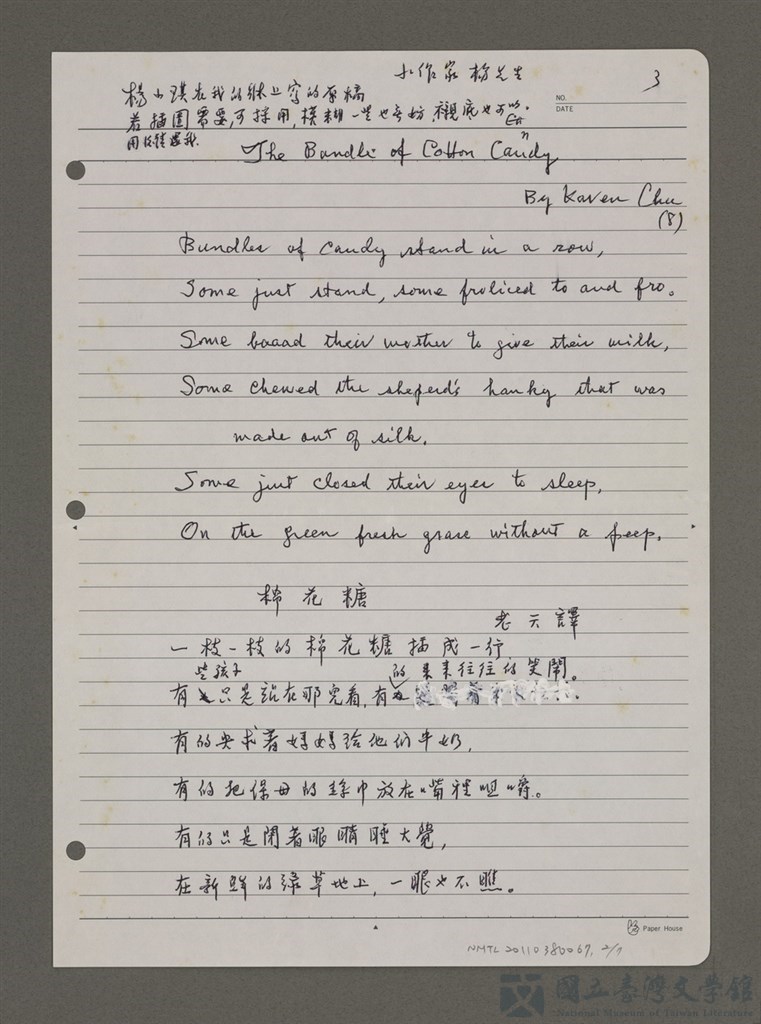 小作家 楊先生
3
楊小琪在我的紙上寫的原稿
NO.
DATE
若插圖需要,可採用,模糊一些也無妨,襯底也可以。
用後請還我.
"The Bundle of Cotton Candy"
By Karen Chu
(8)
Bundles of candy stand in a row,
Some just stand, some froliced to and fro.
Some baaad their mother to give their milk,
Some chewed the sheperd's hanky that was
made out of silk.
Some just closed their eyes to sleep,
On the green fresh grass without a peep.
棉花糖
老云譯
一枝一枝的棉花糖插成一行
些孩子 的來來往往的笑鬧。
有只是站在那兒看,有
有的央求著媽媽給他們牛奶,
有的把保母的絲巾放在嘴裡咀嚼。
有的只是閉著眼睛睡大覺,
在新鮮的綠草地上,一眼也不瞧。
Paper House
NMTL 20110380067, 2/7
國立臺灣文學館
National Museum of Taiwan Literature